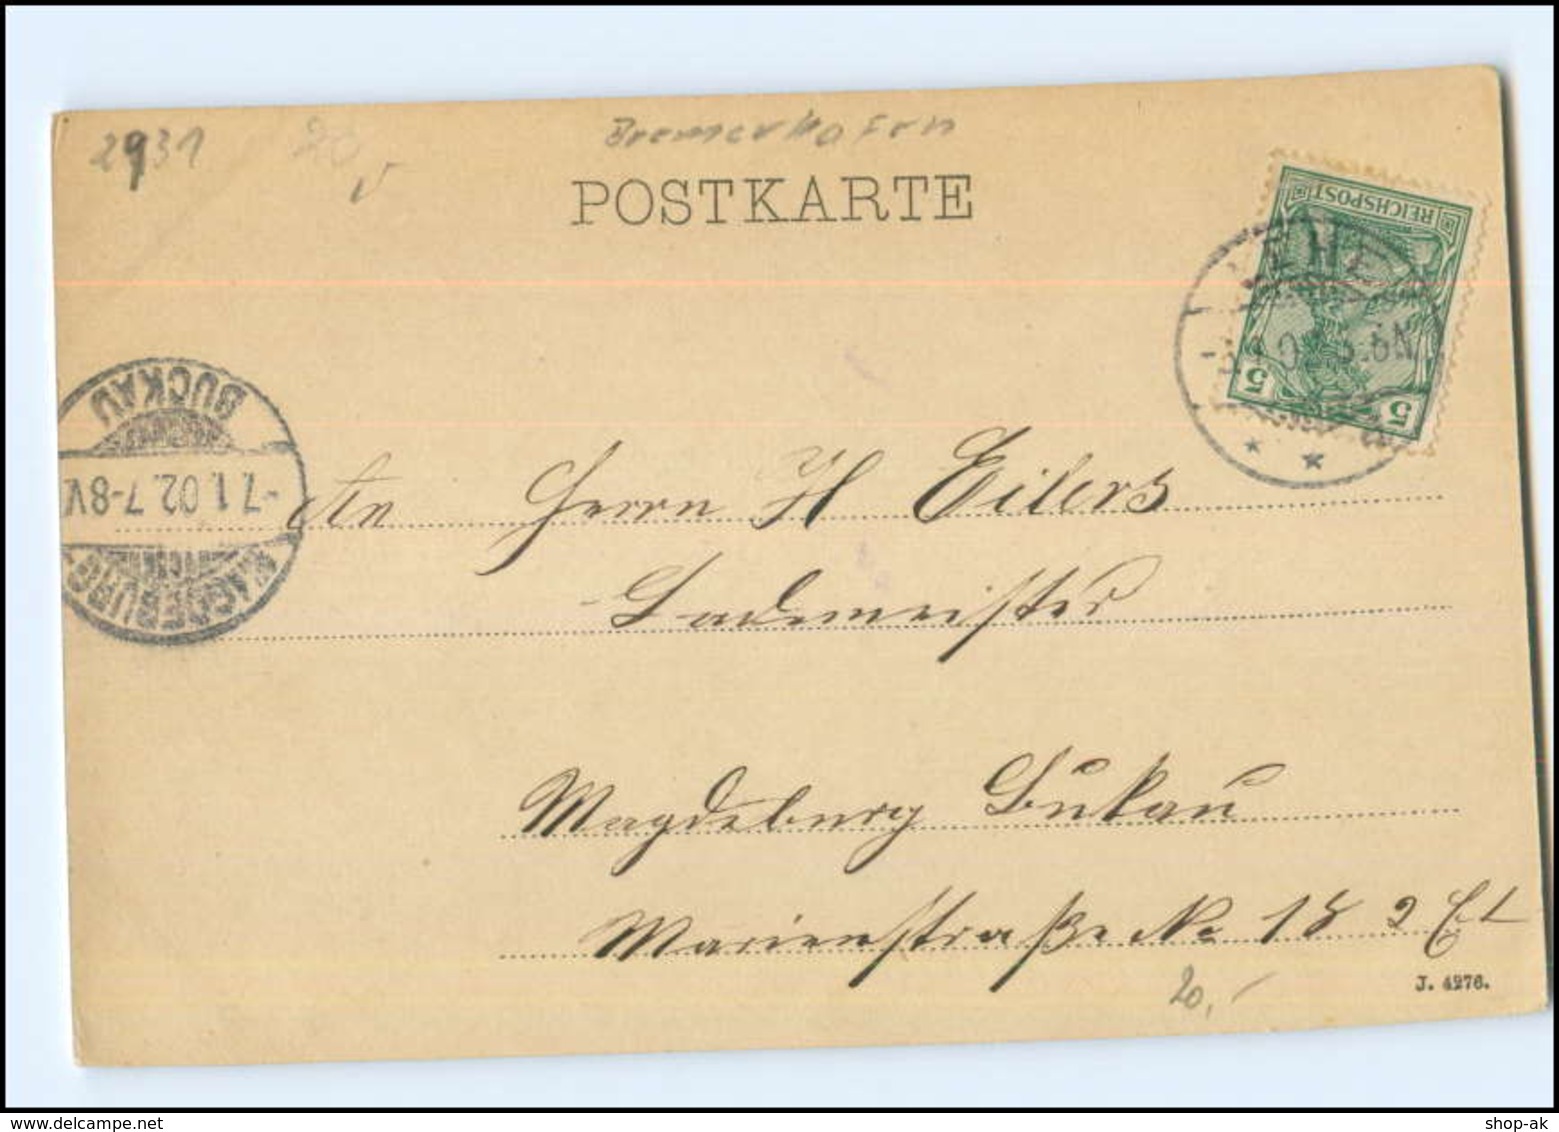 2931
20
Bremerhafen
POSTKARTE
REICHSPOST
5 5
LEHE
BUCKAU
-7.1.02.7-8V.
MAGDEBURG-
An Herrn H Eilers
Lademeister
Magdeburg Bukau
Marienstraße No 18 2 Et
20,-
J. 4276.
shop-ak